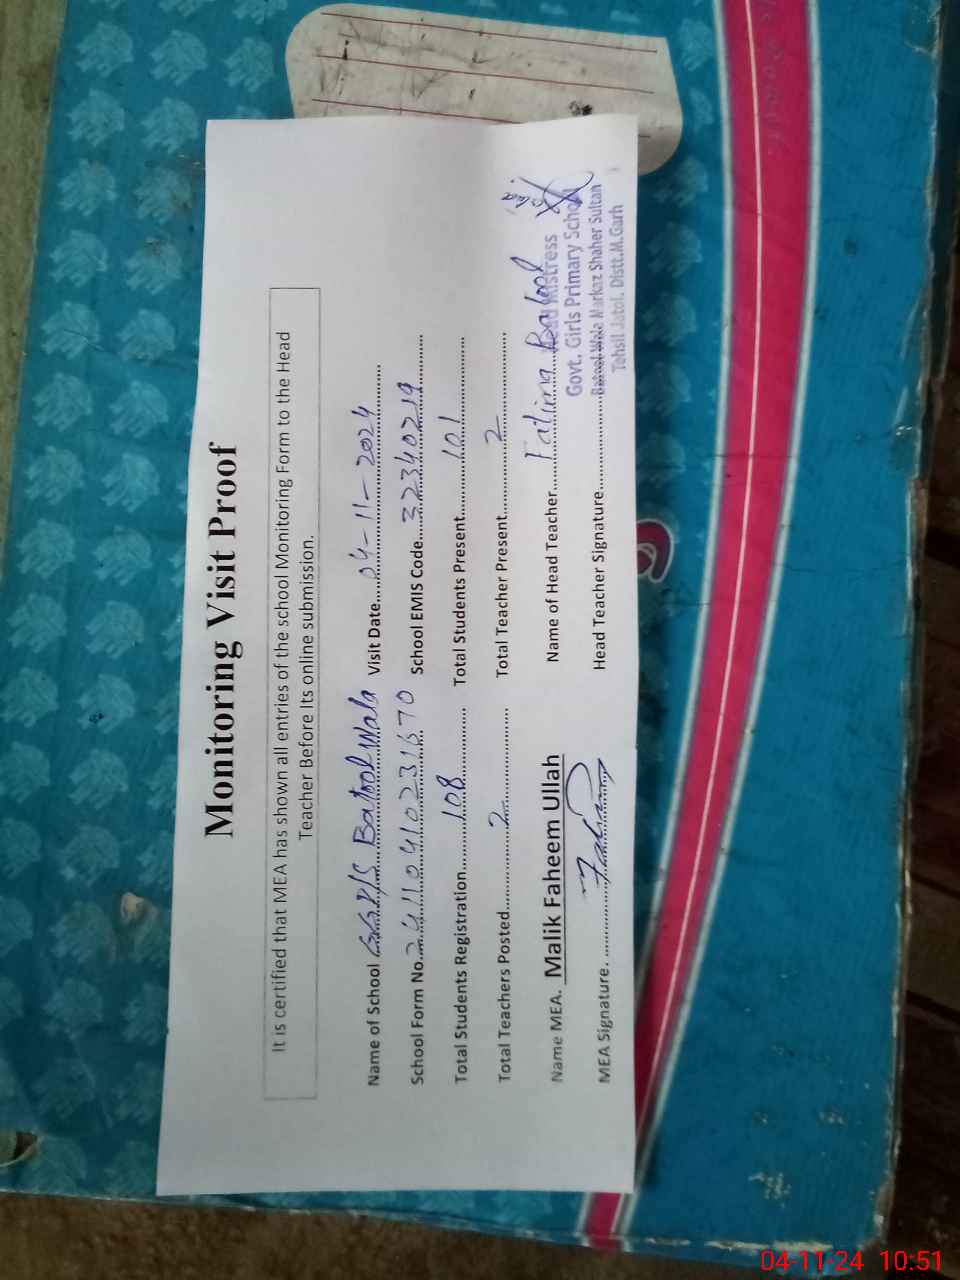 Monitoring Visit Proof
It is certified that MEA has shown all entries of the school Monitoring Form to the Head
Teacher Before Its online submission.
Name of School GGPS Batool Wala Visit Date 04-11-2024
School Form No. 24110410231670 School EMIS Code 32340219
Total Students Registration 108 Total Students Present 101
Total Teachers Posted 2 Total Teacher Present 2
Name MEA. Malik Faheem Ullah Name of Head Teacher Fatima Batool
MEA Signature. Faheem Head Teacher Signature
Head Mistress
Govt. Girls Primary School
Batool Wala Markaz Shaher Sultan
Tehsil Jatoi. Distt.M.Garh
04-11-24 10:51